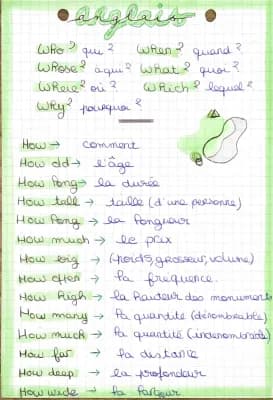 anglais
Who? qui? When? quand?
Whose? à qui? What? quoi?
Where? où? Which? lequel?
Why? pourquoi?
How → comment
How old → l'âge
How long → la durée
How tall → taille (d'une personne)
How long → la longueur
How much → le prix
How big → (poids, grosseur, volume)
How often → la frequence.
How high → la hauteur des monuments
How many → la quantité (dénombrable)
How much → la quantité (indénombrable)
How far → la distance
How deep → la profondeur
How wide → la largeur